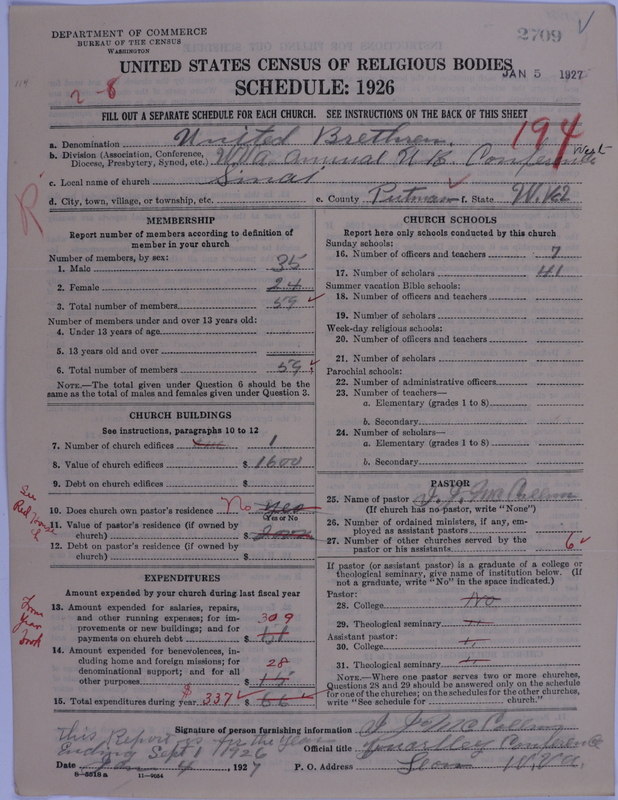 DEPARTMENT OF COMMERCE
BUREAU OF THE CENSUS
WASHINGTON
2709
UNITED STATES CENSUS OF RELIGIOUS BODIES
JAN 5 1927
SCHEDULE: 1926
2-8
FILL OUT A SEPARATE SCHEDULE FOR EACH CHURCH. SEE INSTRUCTIONS ON THE BACK OF THIS SHEET
194
a. Denomination United Brethren
b. Division (Association, Conference, Diocese, Presbytery, Synod, etc.) W.VA. Annual U B. Conference West
c. Local name of church Sinai
d. City, town, village, or township, etc. e. County Putnam f. State W. Va
R
MEMBERSHIP
Report number of members according to definition of
member in your church
Number of members, by sex:
1. Male 35
2. Female 24
3. Total number of members 59
Number of members under and over 13 years old:
4. Under 13 years of age
5. 13 years old and over
6. Total number of members 59
NOTE.—The total given under Question 6 should be the
same as the total of males and females given under Question 3.
CHURCH BUILDINGS
See instructions, paragraphs 10 to 12
7. Number of church edifices 1
8. Value of church edifices $ 1600
9. Debt on church edifices $
10. Does church own pastor's residence No Yes
(Yes or No)
11. Value of pastor's residence (if owned by
church) $ 2000
12. Debt on pastor's residence (if owned by
church) $
See Red House
EXPENDITURES
Amount expended by your church during last fiscal year
13. Amount expended for salaries, repairs,
and other running expenses; for im- 309
provements or new buildings; and for
payments on church debt $ 51
14. Amount expended for benevolences, in-
cluding home and foreign missions; for
denominational support; and for all 28
other purposes $ 15
15. Total expenditures during year $337 $ 66
From
Year
book
CHURCH SCHOOLS
Report here only schools conducted by this church
Sunday schools:
16. Number of officers and teachers 7
17. Number of scholars 41
Summer vacation Bible schools:
18. Number of officers and teachers
19. Number of scholars
Week-day religious schools:
20. Number of officers and teachers
21. Number of scholars
Parochial schools:
22. Number of administrative officers
23. Number of teachers—
a. Elementary (grades 1 to 8)
b. Secondary
24. Number of scholars—
a. Elementary (grades 1 to 8)
b. Secondary
PASTOR
25. Name of pastor McCallum
(If church has no pastor, write "None")
26. Number of ordained ministers, if any, em-
ployed as assistant pastors
27. Number of other churches served by the
pastor or his assistants 6
If pastor (or assistant pastor) is a graduate of a college or
theological seminary, give name of institution below. (If
not a graduate, write "No" in the space indicated.)
Pastor:
28. College No
29. Theological seminary "
Assistant pastor:
30. College "
31. Theological seminary "
NOTE.—Where one pastor serves two or more churches,
Questions 28 and 29 should be answered only on the schedule
for one of the churches; on the schedules for the other churches,
write "See schedule for church."
Signature of person furnishing information McCallum
This Report is for the Year
Ending Sept 1 1926
Official title Conference
Date Jan 4, 1927 P. O. Address Leon W.Va.
8-5518a 11-9054